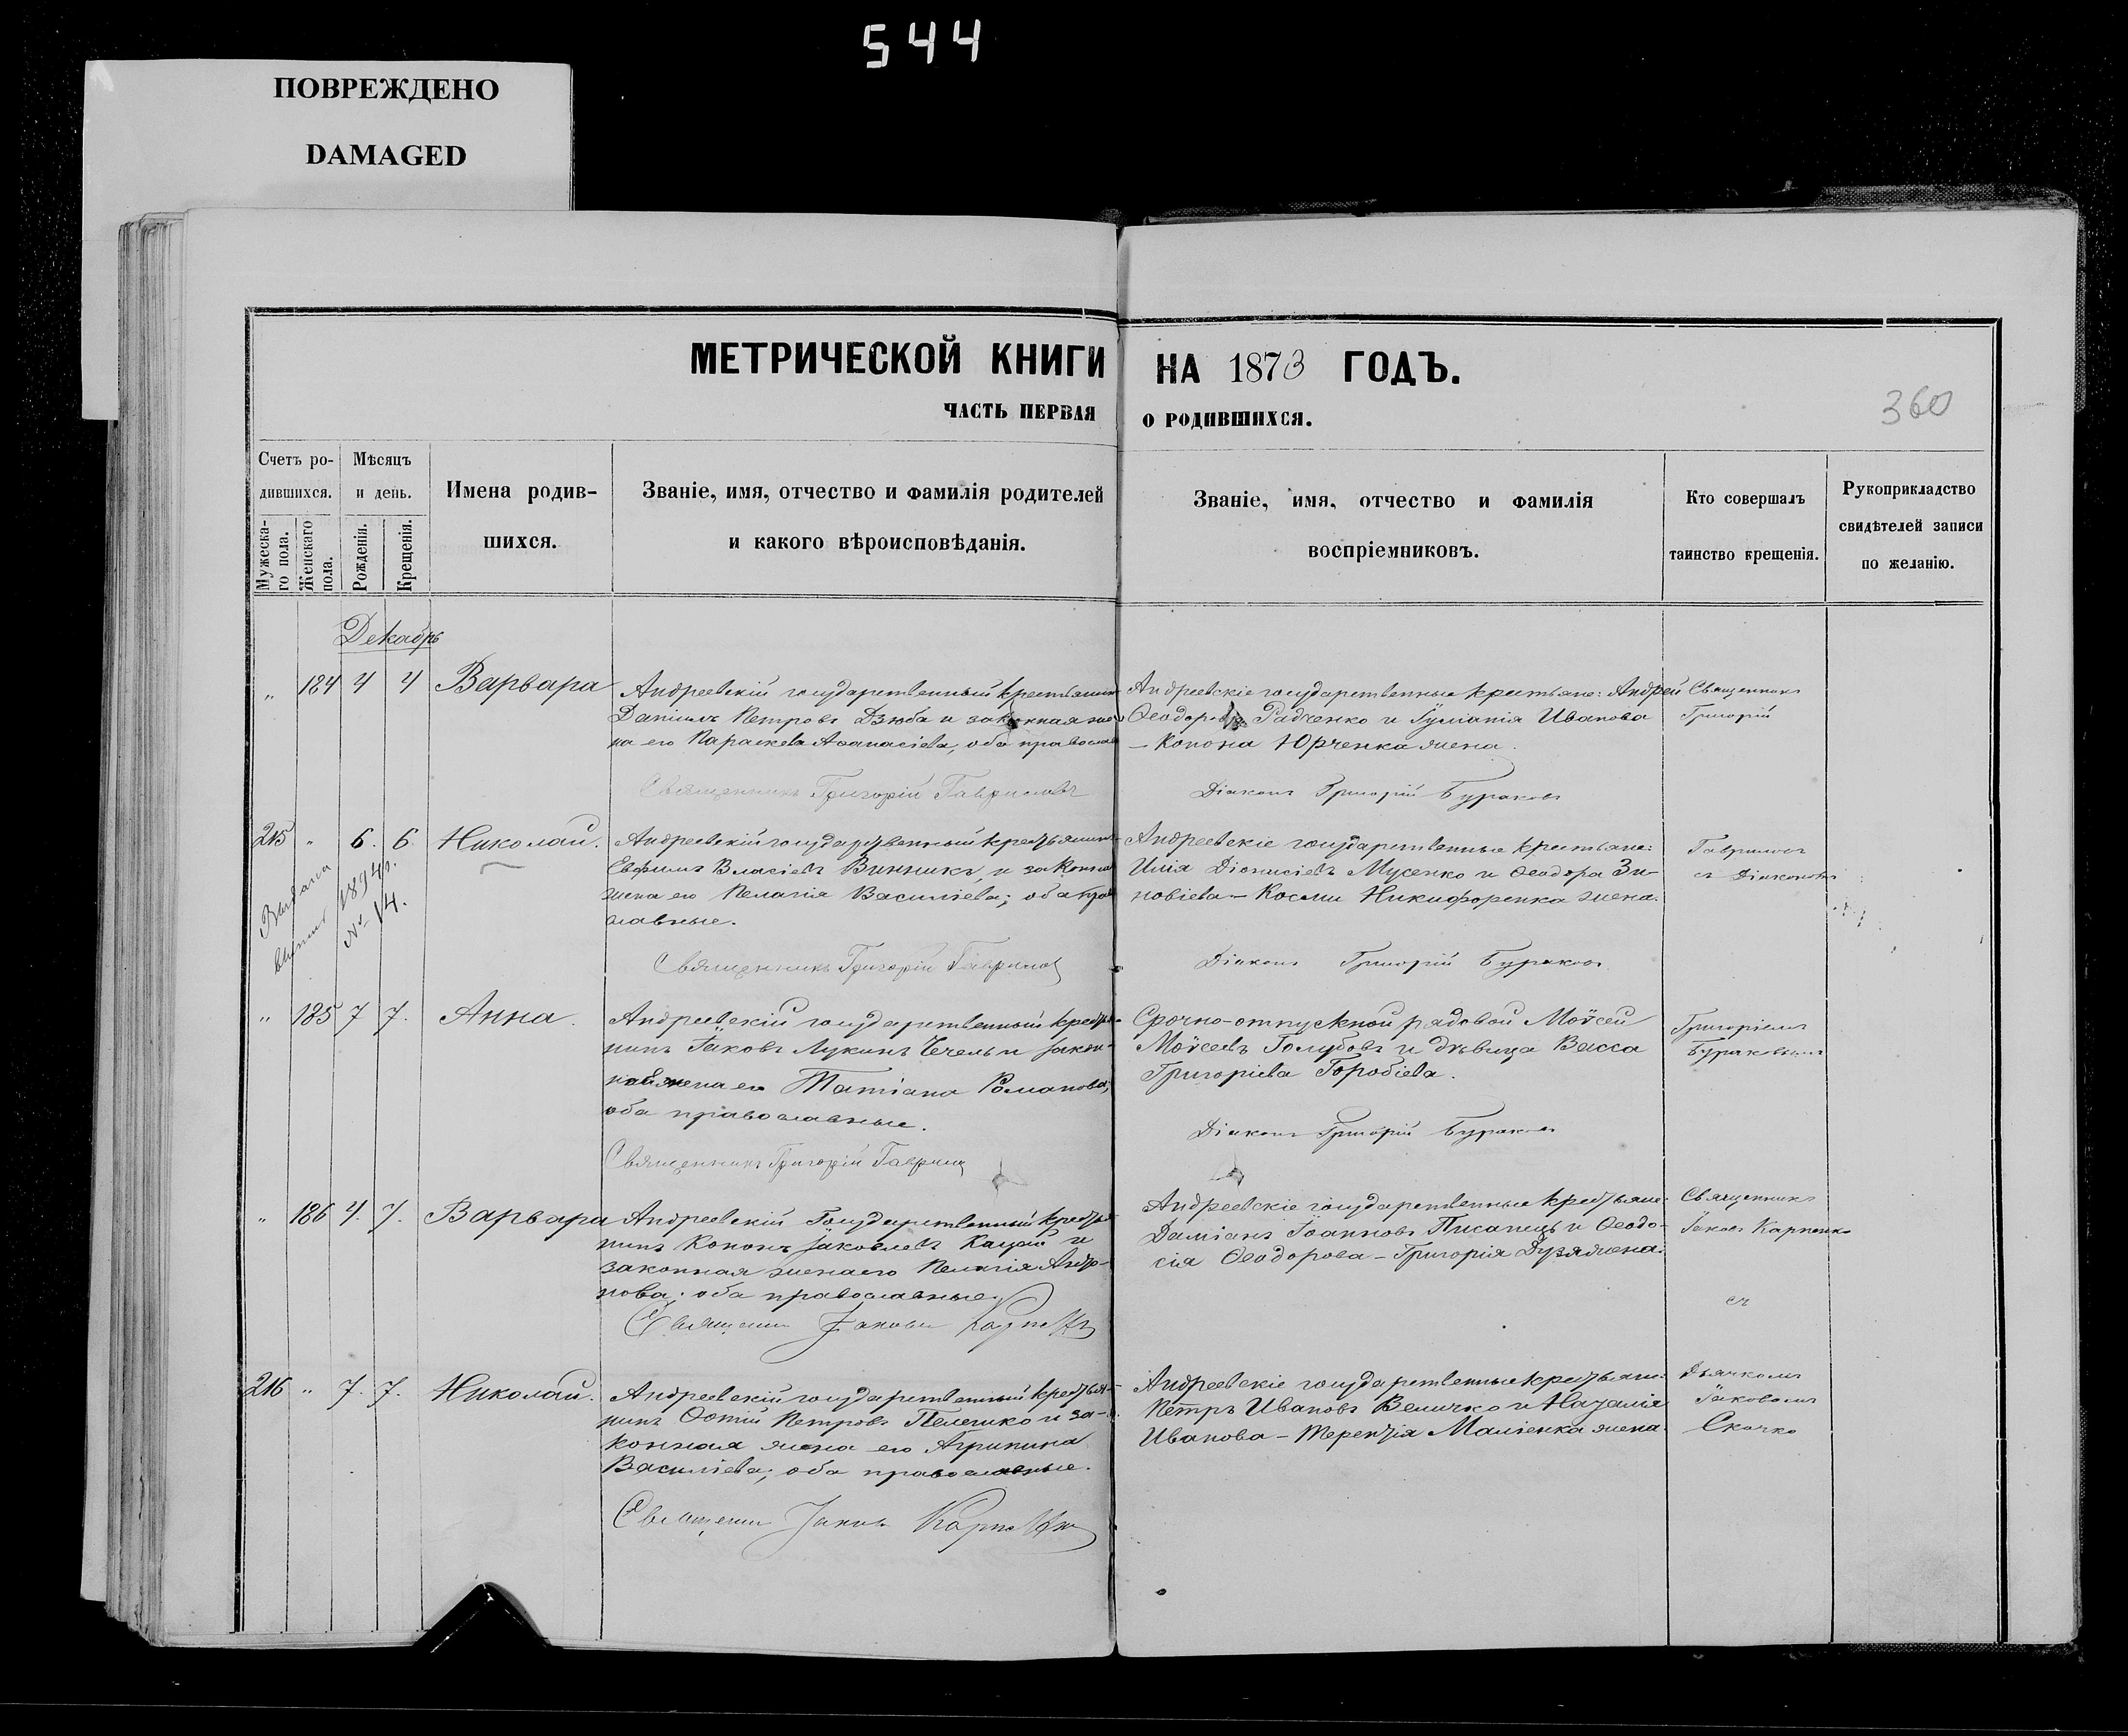 544
ПОВРЕЖДЕНО
DAMAGED
МЕТРИЧЕСКОЙ КНИГИ НА 1873 ГОДЪ.
ЧАСТЬ ПЕРВАЯ О РОДИВШИХСЯ.
360
Счетъ ро-
дившихся.
Мужеска-
го пола.
Женскаго
пола.
Мѣсяцъ
и день.
Рожденія.
Крещенія.
Имена родив-
шихся.
Званіе, имя, отчество и фамилія родителей
и какого вѣроисповѣданія.
Званіе, имя, отчество и фамилія
воспріемниковъ.
Кто совершалъ
таинство крещенія.
Рукоприкладство
свидѣтелей записи
по желанію.
Декабрь
„ 184 4 4 Варвара
Андреевскій государственный крестьянин
Даніилъ Петровъ Дзюба и законная же
на его Параскева Аѳанасіева, оба православ
Андреевскіе государственные крестьяне: Андрей
Ѳеодоровъ Радченко и Іуліанія Иванова
– Конона Юрченка жена.
Священникъ
Григорій
Священникъ Григорій Гавриловъ
Діаконъ Григорій Бураковъ
215 „ 6. 6 Николай.
Андреевскій государственный крестьянинъ
Евфимъ Власіевъ Винникъ, и законная
жена его Пелагія Василіева; оба право
славные.
Андреевскіе государственные крестьяне:
Илія Діонисіевъ Мусенко и Ѳеодора Зи-
новіева – Космы Никифоренка жена.
Гавриловъ
съ Діакономъ
Выдана
1894 г.
№ 14.
Священникъ Григорій Гаврилов
Діаконъ Григорій Бураковъ
„ 185 7 7. Анна.
Андреевскій государственный кресть-
нинъ Іаковъ Лукинъ Чечель и закон-
ная жена его Татіана Романова;
оба православные.
Срочно-отпускной рядовой Моѵсей
Моѵсеевъ Голубовъ и дѣвица Васса
Григоріева Горобіева.
Григоріемъ
Бураковымъ
Діаконъ Григорій Бураковъ
Священникъ Григорій Гаврил
„ 186 4. 7. Варвара
Андреевскій Государственный кресть-
нинъ Кононъ Іаковлевъ Кацай и
законная жена его Пелагія Андр-
нова; оба православные.
Андреевскіе государственные крестьяне:
Даміанъ Іоанновъ Писанецъ и Ѳеодо-
сія Ѳеодорова – Григорія Дузя жена.
Священникъ
Іаковъ Карпенко
съ
Священни Іаковъ Карпенко
216 „ 7. 7. Николай.
Андреевскій государственный крестья-
нинъ Фотій Петровъ Пелешко и за-
конная жена его Агрипина
Василіева; оба православные.
Андреевскіе государственные крестьяне:
Петръ Ивановъ Величко и Наталія
Иванова – Терентія Маліенка жена.
Дьячкомъ
Іаковомъ
Скачко
Священни Іаковъ Карпенко